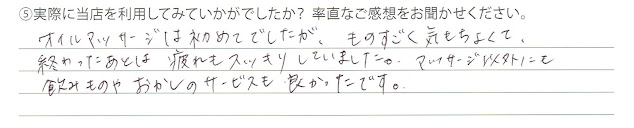 ⑤実際に当店を利用してみていかがでしたか？率直なご感想をお聞かせください。
オイルマッサージは初めてでしたが、ものすごく気もちよくて、
終わったあとは 疲れもスッキリしていました。マッサージ以外にも
飲みものや おかしのサービスも 良かったです。